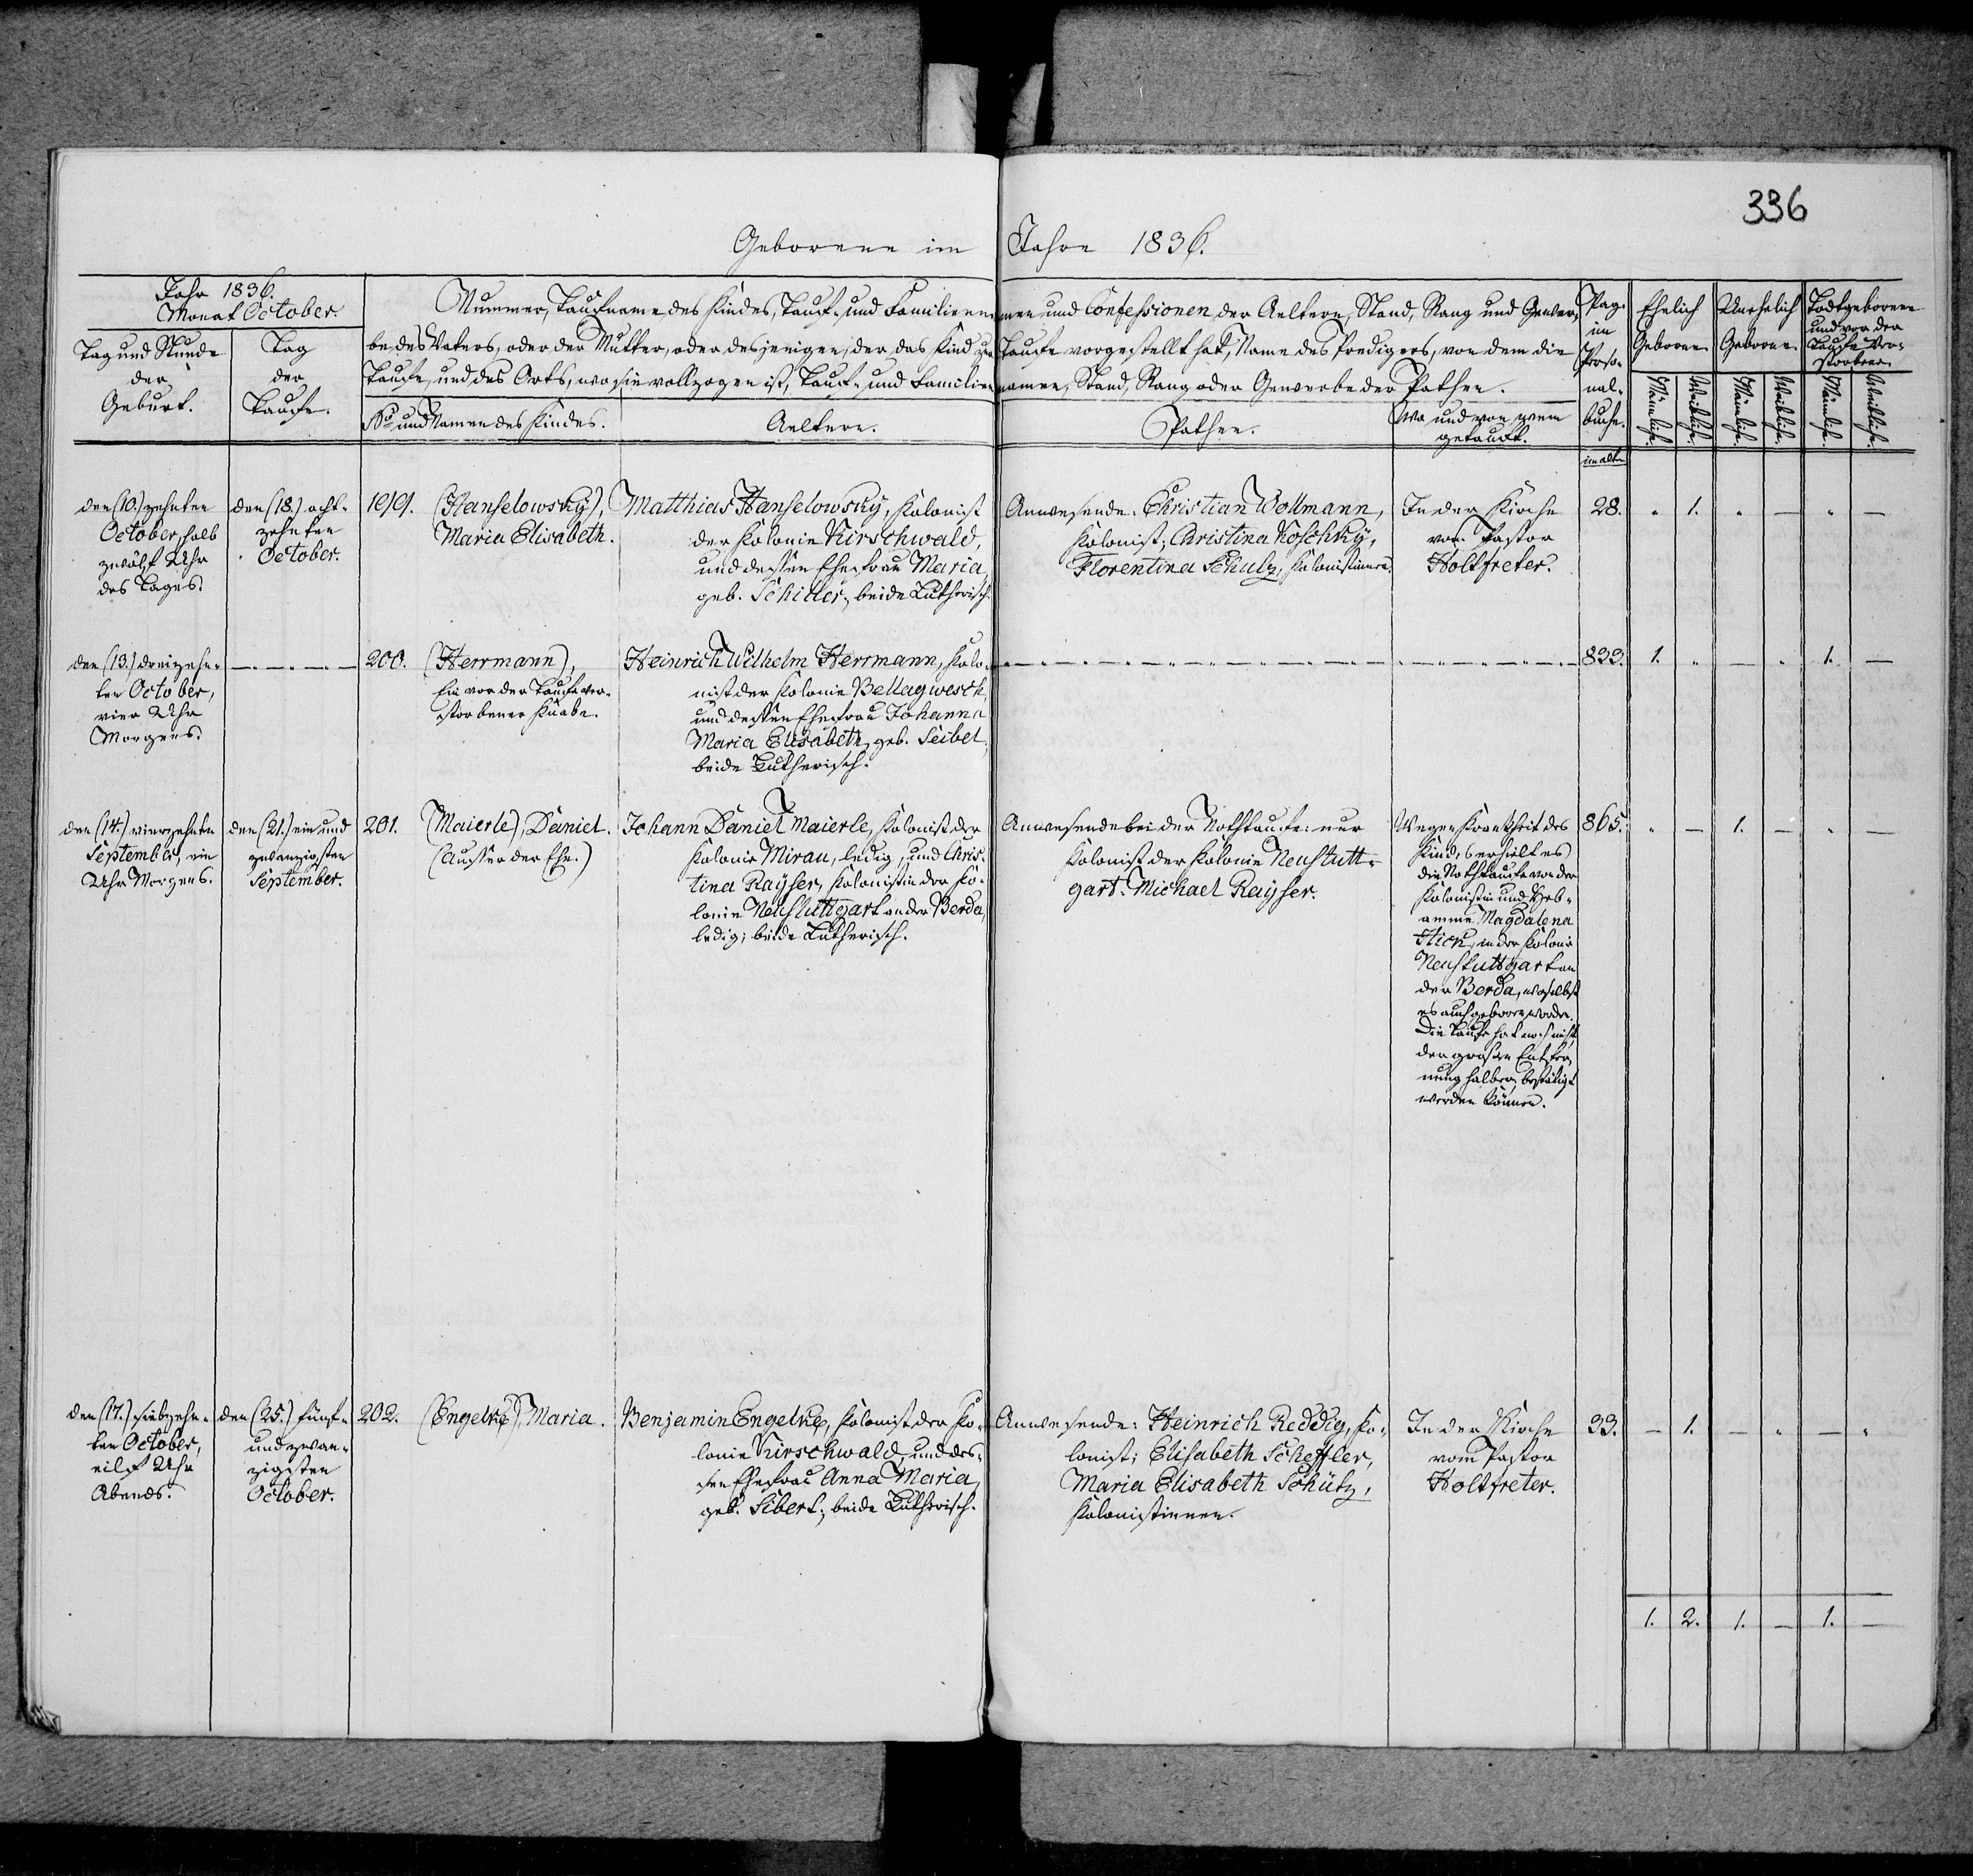 336
Geborene im Jahre 1836.
Jahr 1836.
Monat October.
Tag und Stunde
der
Geburt.
Tag
der
Taufe.
Nummer, Taufname des Kindes, Tauf- und Familiennamen und Confessionen der Aeltern, Stand, Rang und Gewer-
be des Vaters, oder der Mutter, oder desjenigen, der das Kind zur Taufe vorgestellt hat, Name des Predigers, von dem die
Taufe, und des Orts, wo sie vollzogen ist, Tauf- und Familiennamen, Stand, Rang oder Gewerbe der Pathen.
No und Namen des Kindes.
Aeltern.
Pathen.
Wo und von wem
getauft.
Pag.
im
Perso-
nal-
buche.
Ehelich
Geborne
Unehelich
Geborne.
Todtgeborene
und vor der
Taufe Ver-
storbene.
Männlich.
Weiblich.
Männlich.
Weiblich.
Männlich.
Weiblich.
im alten
den (10.) zehnten
October, halb
zwölf Uhr
des Tages.
den (18.) acht-
zehnten
October.
199. (Hanselowsky),
Maria Elisabeth.
Matthias Hanselowsky, Kolonist
der Kolonie Kirschwald,
und dessen Ehefrau Maria,
geb. Schiller; beide Lutherisch.
Anwesende: Christian Wollmann,
Kolonist; Christina Koschky,
Florentina Schulz, Kolonistinnen.
In der Kirche
vom Pastor
Holtfreter.
28. " 1. " — " —
den (13.) dreizehn-
ten October,
vier Uhr
Morgens.
200. (Herrmann),
Ein vor der Taufe ver-
storbener Knabe.
Heinrich Wilhelm Herrmann, Kolo-
nist der Kolonie Bellagwesch,
und dessen Ehefrau Johanna
Maria Elisabeth, geb. Seibel,
beide Lutherisch.
833. 1. " — " 1. —
den (14.) vierzehnten
September, ein
Uhr Morgens.
den (21.) ein und
zwanzigsten
September.
201. (Maierle), Daniel.
(Ausser der Ehe.)
Johann Daniel Maierle, Kolonist der
Kolonie Mirau, ledig, und Chris-
tina Rayser, Kolonistin der Ko-
lonie Neustuttgart an der Berda,
ledig; beide Lutherisch.
Anwesende bei der Nothtaufe: nur
Kolonist der Kolonie Neustutt-
gart: Michael Rayser.
Wegen Krankheit des
Kindes erhielt es
die Nothtaufe von der
Kolonistin und Heb-
amme Magdalena
Hick, in der Kolonie
Neustuttgart an
der Berda, woselbst
es auch geboren worden.
Die Taufe hat noch nicht
der grossen Entfer-
nung halber, bestätigt
werden können.
865. " — 1. — " —
den (17.) siebzehn-
ten October,
eilf Uhr
Abends.
den (25.) fünf-
und zwan-
zigsten
October.
202. (Engelke) Maria.
Benjamin Engelke, Kolonist der Ko-
lonie Kirschwald, und des-
sen Ehefrau Anna Maria,
geb. Sibert; beide Lutherisch.
Anwesende: Heinrich Reddig, Ko-
lonist; Elisabeth Scheffler,
Maria Elisabeth Schütz,
Kolonistinnen.
In der Kirche
vom Pastor
Holtfreter.
33. — 1. — " — "
1. 2. 1. — 1. —